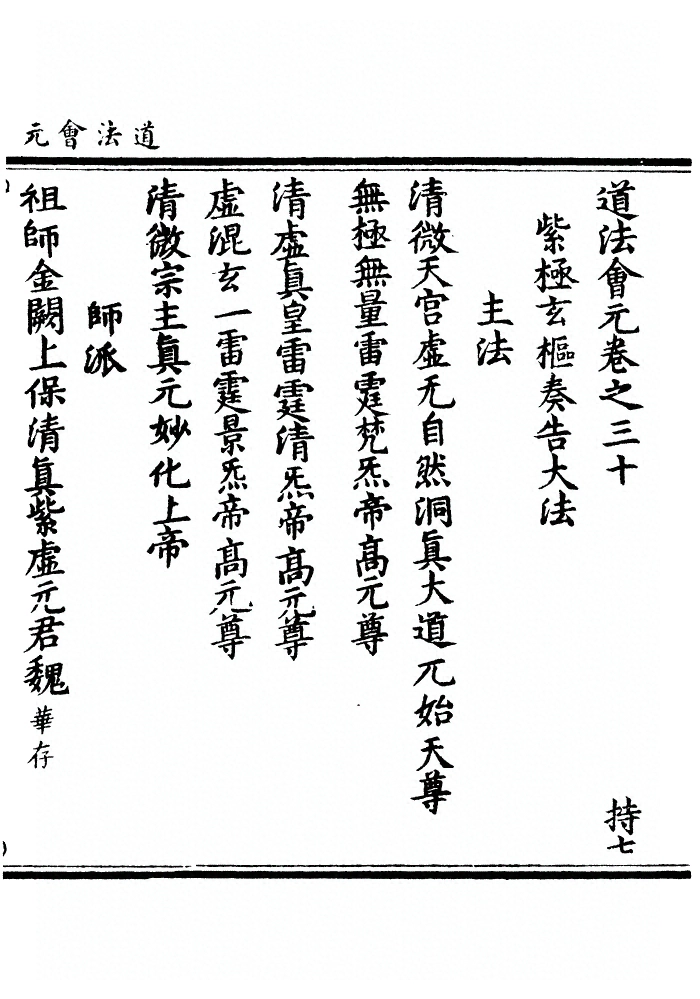 道法會元
道法會元卷之三十 持七
紫極玄樞奏告大法
主法
清微天宮虛无自然洞眞大道兀始天尊
無極無量雷霆梵炁帝髙元尊
清虛眞皇雷霆清炁帝髙元尊
虛混玄一雷霆景炁帝髙元尊
清微宗主眞元妙化上帝
師派
祖師金闕上保清眞紫虛元君魏華存